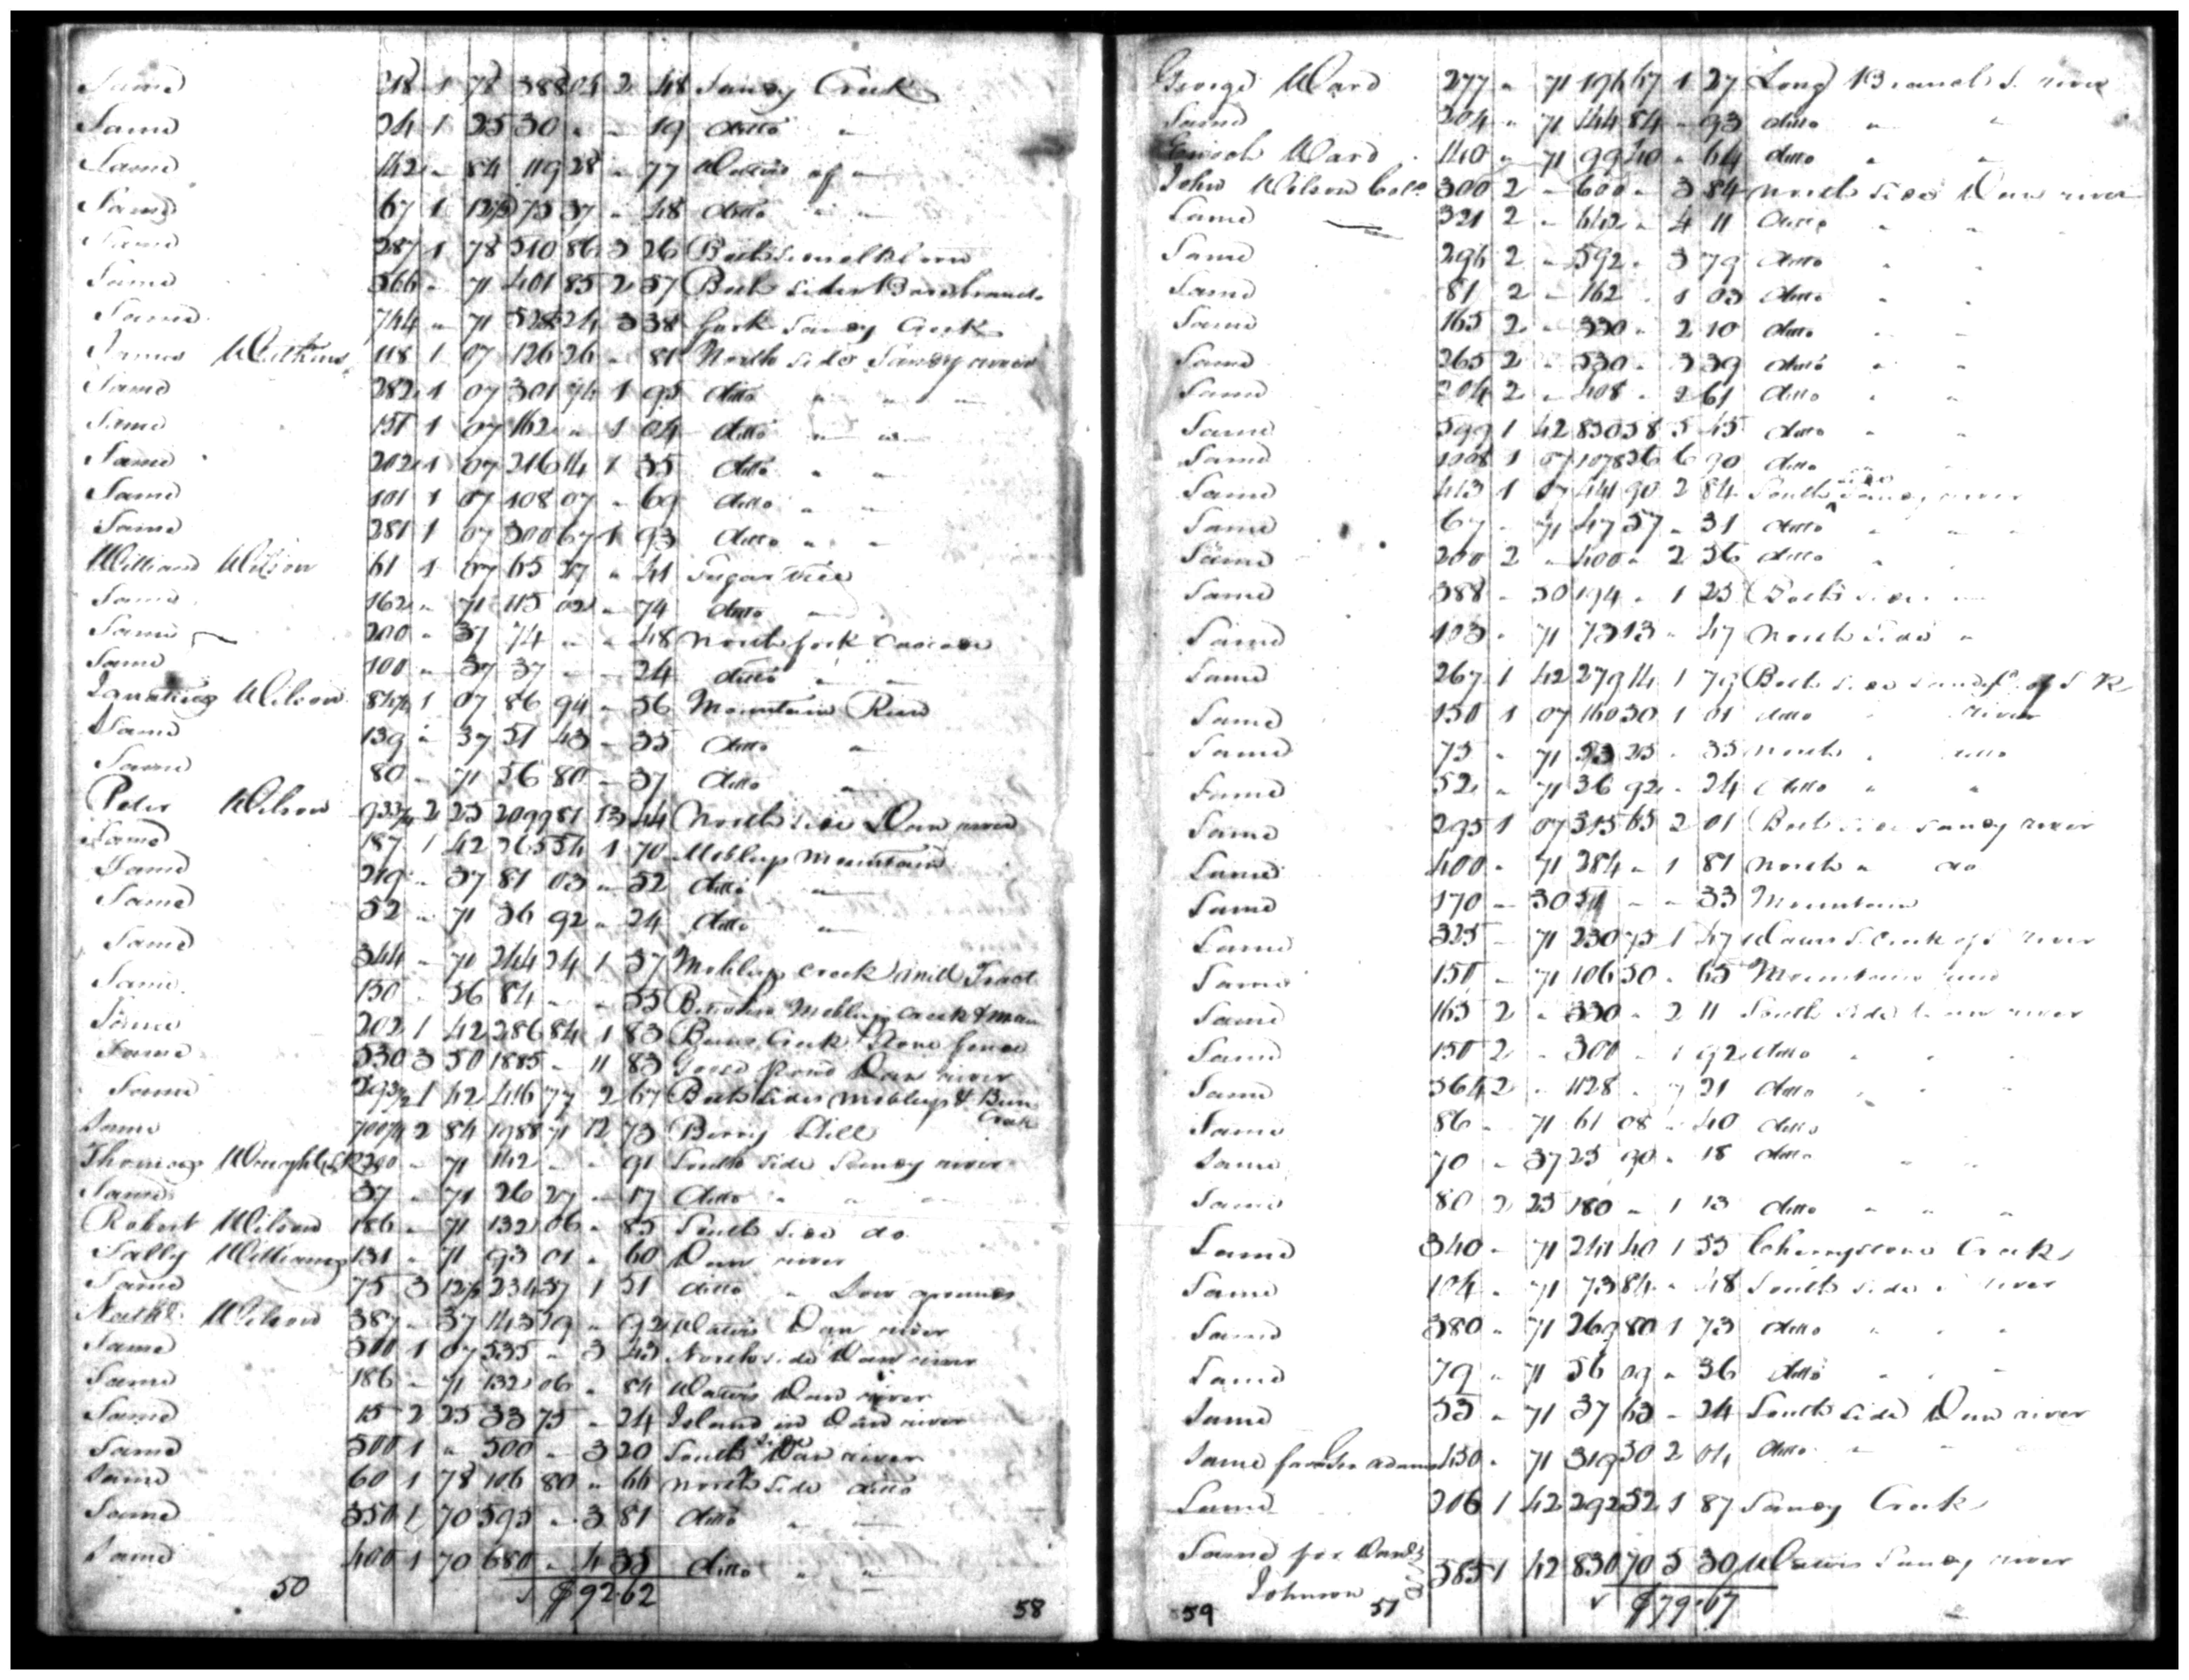 Same 218 1 78 388 04 2 48 Sandy Creek
Same 24 1 25 30 " " 19 ditto "
Same 142 " 84 119 28 " 77 Waters of "
Same 67 1 12½ 75 37 " 48 ditto " "
Same 287 1 78 510 86 3 26 Both sides
Same 566 " 71 401 85 2 57 Both sides
Same 744 " 71 528 24 3 38 fork Sandy Creek
James Watkins 118 1 07 126 26 " 81 North side Sandy river
Same 282 1 07 301 74 1 95 ditto " " "
Same 151 1 07 162 " 1 04 ditto " "
Same 202 1 07 216 14 1 35 ditto " "
Same 101 1 07 108 07 " 69 ditto " "
Same 281 1 07 300 67 1 93 ditto " "
William Wilson 61 1 07 65 27 " 41 Sugar tree
Same 162 " 71 115 02 " 74 ditto "
Same 200 " 37 74 " " 48 North fork Cascade
Same 100 " 37 37 " " 24 ditto " "
Ignatius Wilson 81¼ 1 07 86 94 " 56 Mountain Run
Same 139 " 37 51 43 " 35 ditto "
Same 80 " 71 56 80 " 37 ditto "
Peter Wilson 933¼ 2 25 2099 81 13 44 North side Dan river
Same 187 1 42 265 54 1 70 Moblup Mountain
Same 219 " 37 81 03 " 52 ditto "
Same 52 " 71 36 92 " 24 ditto "
Same 344 " 71 244 24 1 57 Moblup creek mill Tract
Same 150 " 56 84 " " 55 Between Moblup Creek & Moun
Same 202 1 42 286 84 1 83 Creek & Stone house
Same 530 3 50 1885 " 11 83 Goose Pond Dan river
Same 293½ 1 42 416 77 2 67 Both sides Moblup &
Creek
Same 700¼ 2 84 1988 71 12 73 Berry Hill
Thomas 200 " 71 142 " " 91 South side Sandy river
Same 37 " 71 26 27 " 17 ditto " " "
Robert Wilson 186 " 71 132 06 " 85 South side do
Sally Williams 131 " 71 93 01 " 60 Dan river
Same 75 3 12½ 234 37 1 51 ditto " Low grounds
Nathl Wilson 387 " 37 143 19 " 92 Waters Dan river
Same 500 1 07 535 " 3 43 North side Dan river
Same 186 " 71 132 06 " 84 Waters Dan river
Same 15 2 25 33 75 " 24 Island in Dan river
Same 500 1 " 500 " 3 20 South side Dan river
Same 60 1 78 106 80 " 66 North side ditto
Same 350 1 70 595 " 3 81 ditto " "
Same 400 1 70 680 " 4 35 ditto " "
50 $92.62 58
George Ward 277 " 71 196 67 1 27 Long Branch S. river
Same 204 " 71 144 84 " 93 ditto " "
Enoch Ward 140 " 71 99 40 " 64 ditto " "
John Wilson Colo 300 2 " 600 " 3 84 North side Dan river
Same 321 2 " 642 " 4 11 ditto " "
Same 296 2 " 592 " 3 79 ditto " "
Same 81 2 " 162 " 1 03 ditto " "
Same 165 2 " 330 " 2 10 ditto " "
Same 265 2 " 530 " 3 39 ditto " "
Same 204 2 " 408 " 2 61 ditto " "
Same 599 1 42 850 58 5 45 ditto " "
Same 1008 1 07 1078 56 6 90 ditto "
Same 413 1 07 441 90 2 84 South side Sandy river
Same 67 " 71 47 57 " 31 ditto " "
Same 200 2 " 400 " 2 56 ditto "
Same 388 " 50 194 " 1 25 Both sides "
Same 103 " 71 73 13 " 47 North side "
Same 267 1 42 279 14 1 79 Both sides of S R
Same 150 1 07 160 50 1 01 ditto " river
Same 75 " 71 53 25 " 35 North " ditto
Same 52 " 71 36 92 " 24 ditto " "
Same 295 1 07 315 65 2 01 Both sides Sandy river
Same 400 " 71 284 " 1 81 North " do
Same 170 " 30 51 " " 33 Mountain
Same 325 " 71 230 75 1 47 Waters S. Creek of S river
Same 150 " 71 106 50 " 65 Mountain
Same 165 2 " 330 " 2 11 South side Dan river
Same 150 2 " 300 " 1 92 ditto " "
Same 564 2 " 1128 " 7 21 ditto " "
Same 86 " 71 61 08 " 40 ditto
Same 70 " 37 25 90 " 18 ditto " "
Same 80 2 25 180 " 1 13 ditto " " "
Same 340 " 71 241 40 1 55 Cherrystone Creek
Same 104 " 71 73 84 " 48 South side river
Same 380 " 71 269 80 1 73 ditto " "
Same 79 " 71 56 09 " 36 ditto " "
Same 53 " 71 37 63 " 24 South side Dan river
Same for Geo Adams 450 " 71 319 50 2 04 ditto " "
Same 206 1 42 292 52 1 87 Sandy Creek
Same for Danl
Johnson 585 1 42 830 70 5 30 Waters Sandy river
59 51 $79.67